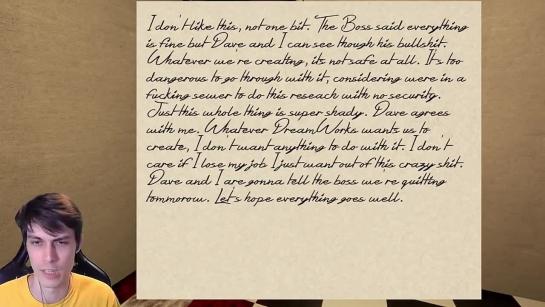 I don't like this, not one bit. The Boss said everything
is fine but Dave and I can see though his bullshit.
Whatever we re creating, its not safe at all. It's too
dangerous to go through with it, considering were in a
fucking sewer to do this reseach with no security.
Just this whole thing is super shady. Dave agrees
with me. Whatever DreamWorks wants us to
create, I don't want anything to do with it. I don't
care if I lose my job I just want out of this crazy shit.
Dave and I are gonna tell the boss we re quitting
tommorow. Let's hope everything goes well.